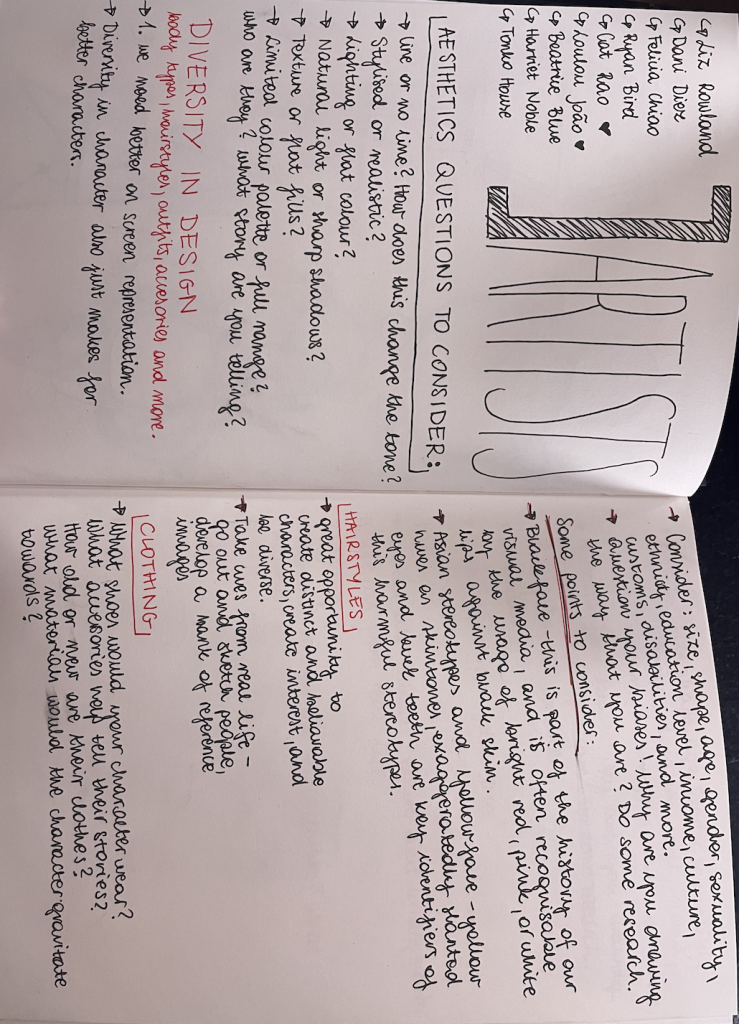 ↪ Liz Rowland
↪ Dani Diez
↪ Felicia Chiao
↪ Ryan Bird
↪ Cat Rao ♥
↪ Loulou João ♥
↪ Beatrice Blue
↪ Harriet Noble
↪ Tonko House
ARTISTS
AESTHETICS QUESTIONS TO CONSIDER:
→ Line or no line? How does this change the tone?
→ Stylised or realistic?
→ Lighting or flat colour?
→ Natural light or sharp shadows?
→ Texture or flat fills?
→ Limited colour palette or full range?
who are they? what story are you telling?
DIVERSITY IN DESIGN
body types, hairstyles, outfits, accesories and more.
→ 1. we need better on screen representation.
→ Diversity in character also just makes for
better characters.
→ Consider: size, shape, age, gender, sexuality,
ethnicity, education level, income, culture,
customs, disabilities, and more.
→ Question your biases! Why are you drawing
the way that you are? Do some research.
Some points to consider:
→ Blackface - this is part of the history of our
visual media, and is often recognisable
by the usage of bright red, pink, or white
lips against black skin.
→ Asian stereotypes and yellow-face - yellow
hues as skintones, exaggeratedly slanted
eyes and buck teeth are key identifiers of
this harmful stereotypes.
HAIRSTYLES
→ great opportunity to
create distinct and believable
characters, create interest, and
be diverse.
→ Take cues from real life -
go out and sketch people,
develop a bank of reference
images
CLOTHING
→ What shoes would your character wear?
What accesories help tell their stories?
How old or new are their clothes?
what materials would the character gravitate
towards?